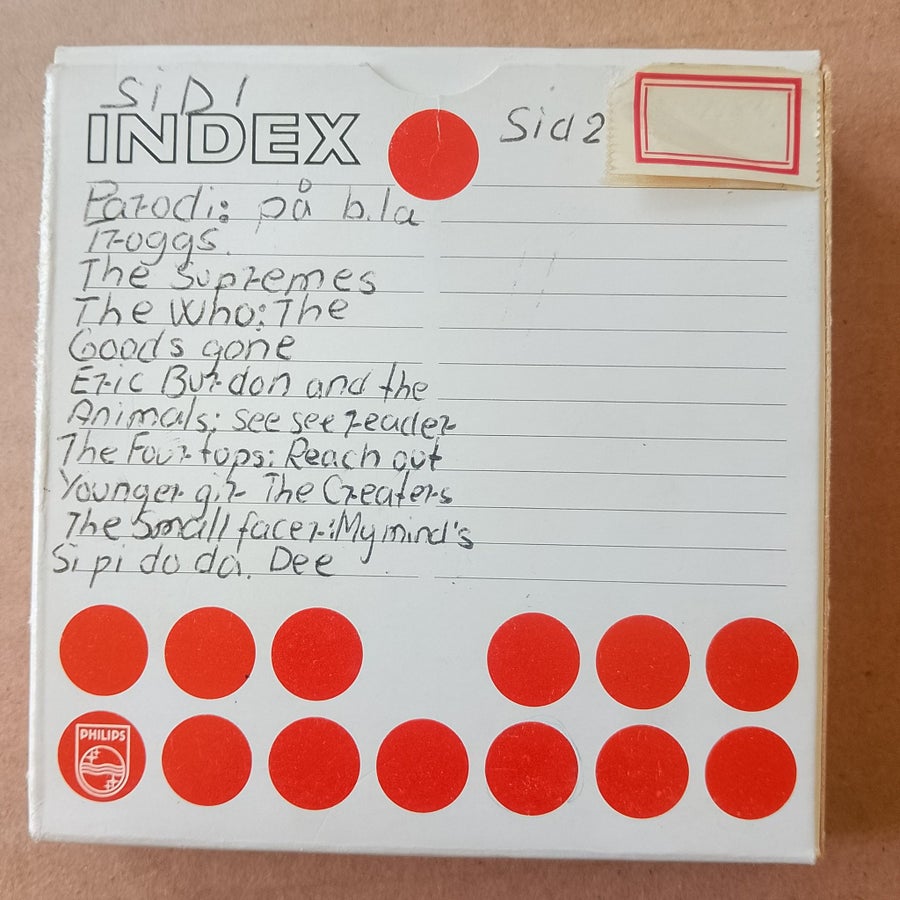 SiD 1
INDEX
Sid 2
Parodi: på b.la
Troggs.
The Supremes
The Who: The
Goods gone
Eric Burdon and the
Animals: see see reader
The Four tops: Reach out
Younger girl The Creaters
The Small faces: My mind's
Si pi do da. Dee
PHILIPS